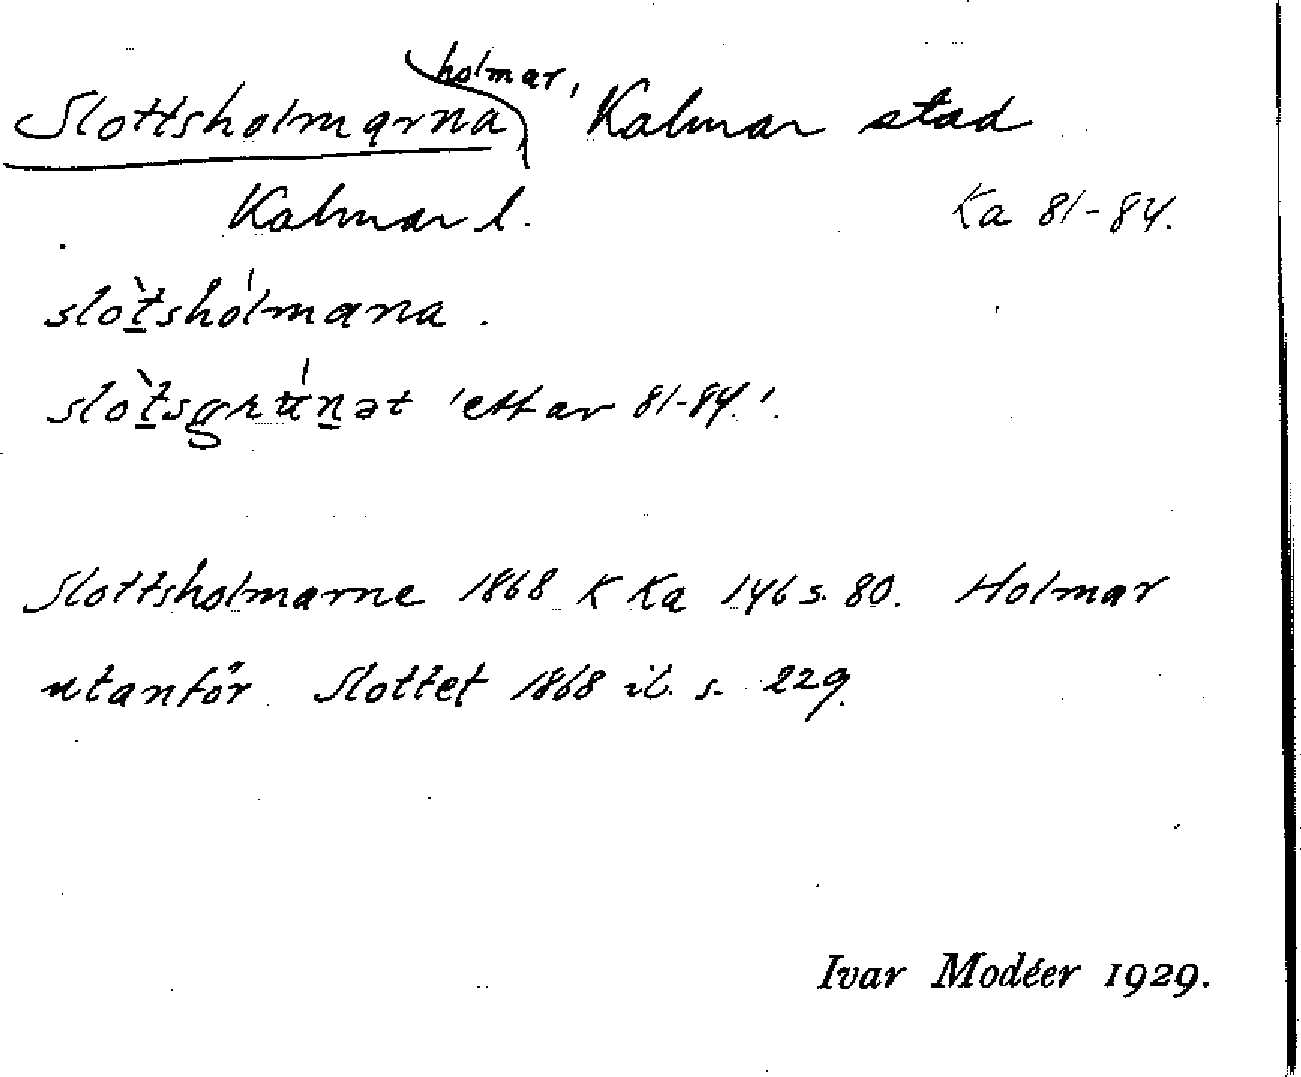 Slottsholmarna, holmar, Kalmar stad
Kalmar l. Ka 81-84.
slòtshólmana.
slòtsgrúnət 'ett av 81-84.'.
Slottsholmarne 1868 K Ka 146 s. 80. Holmar
utanför Slottet 1868 ib. s. 229.
Ivar Modéer 1929.